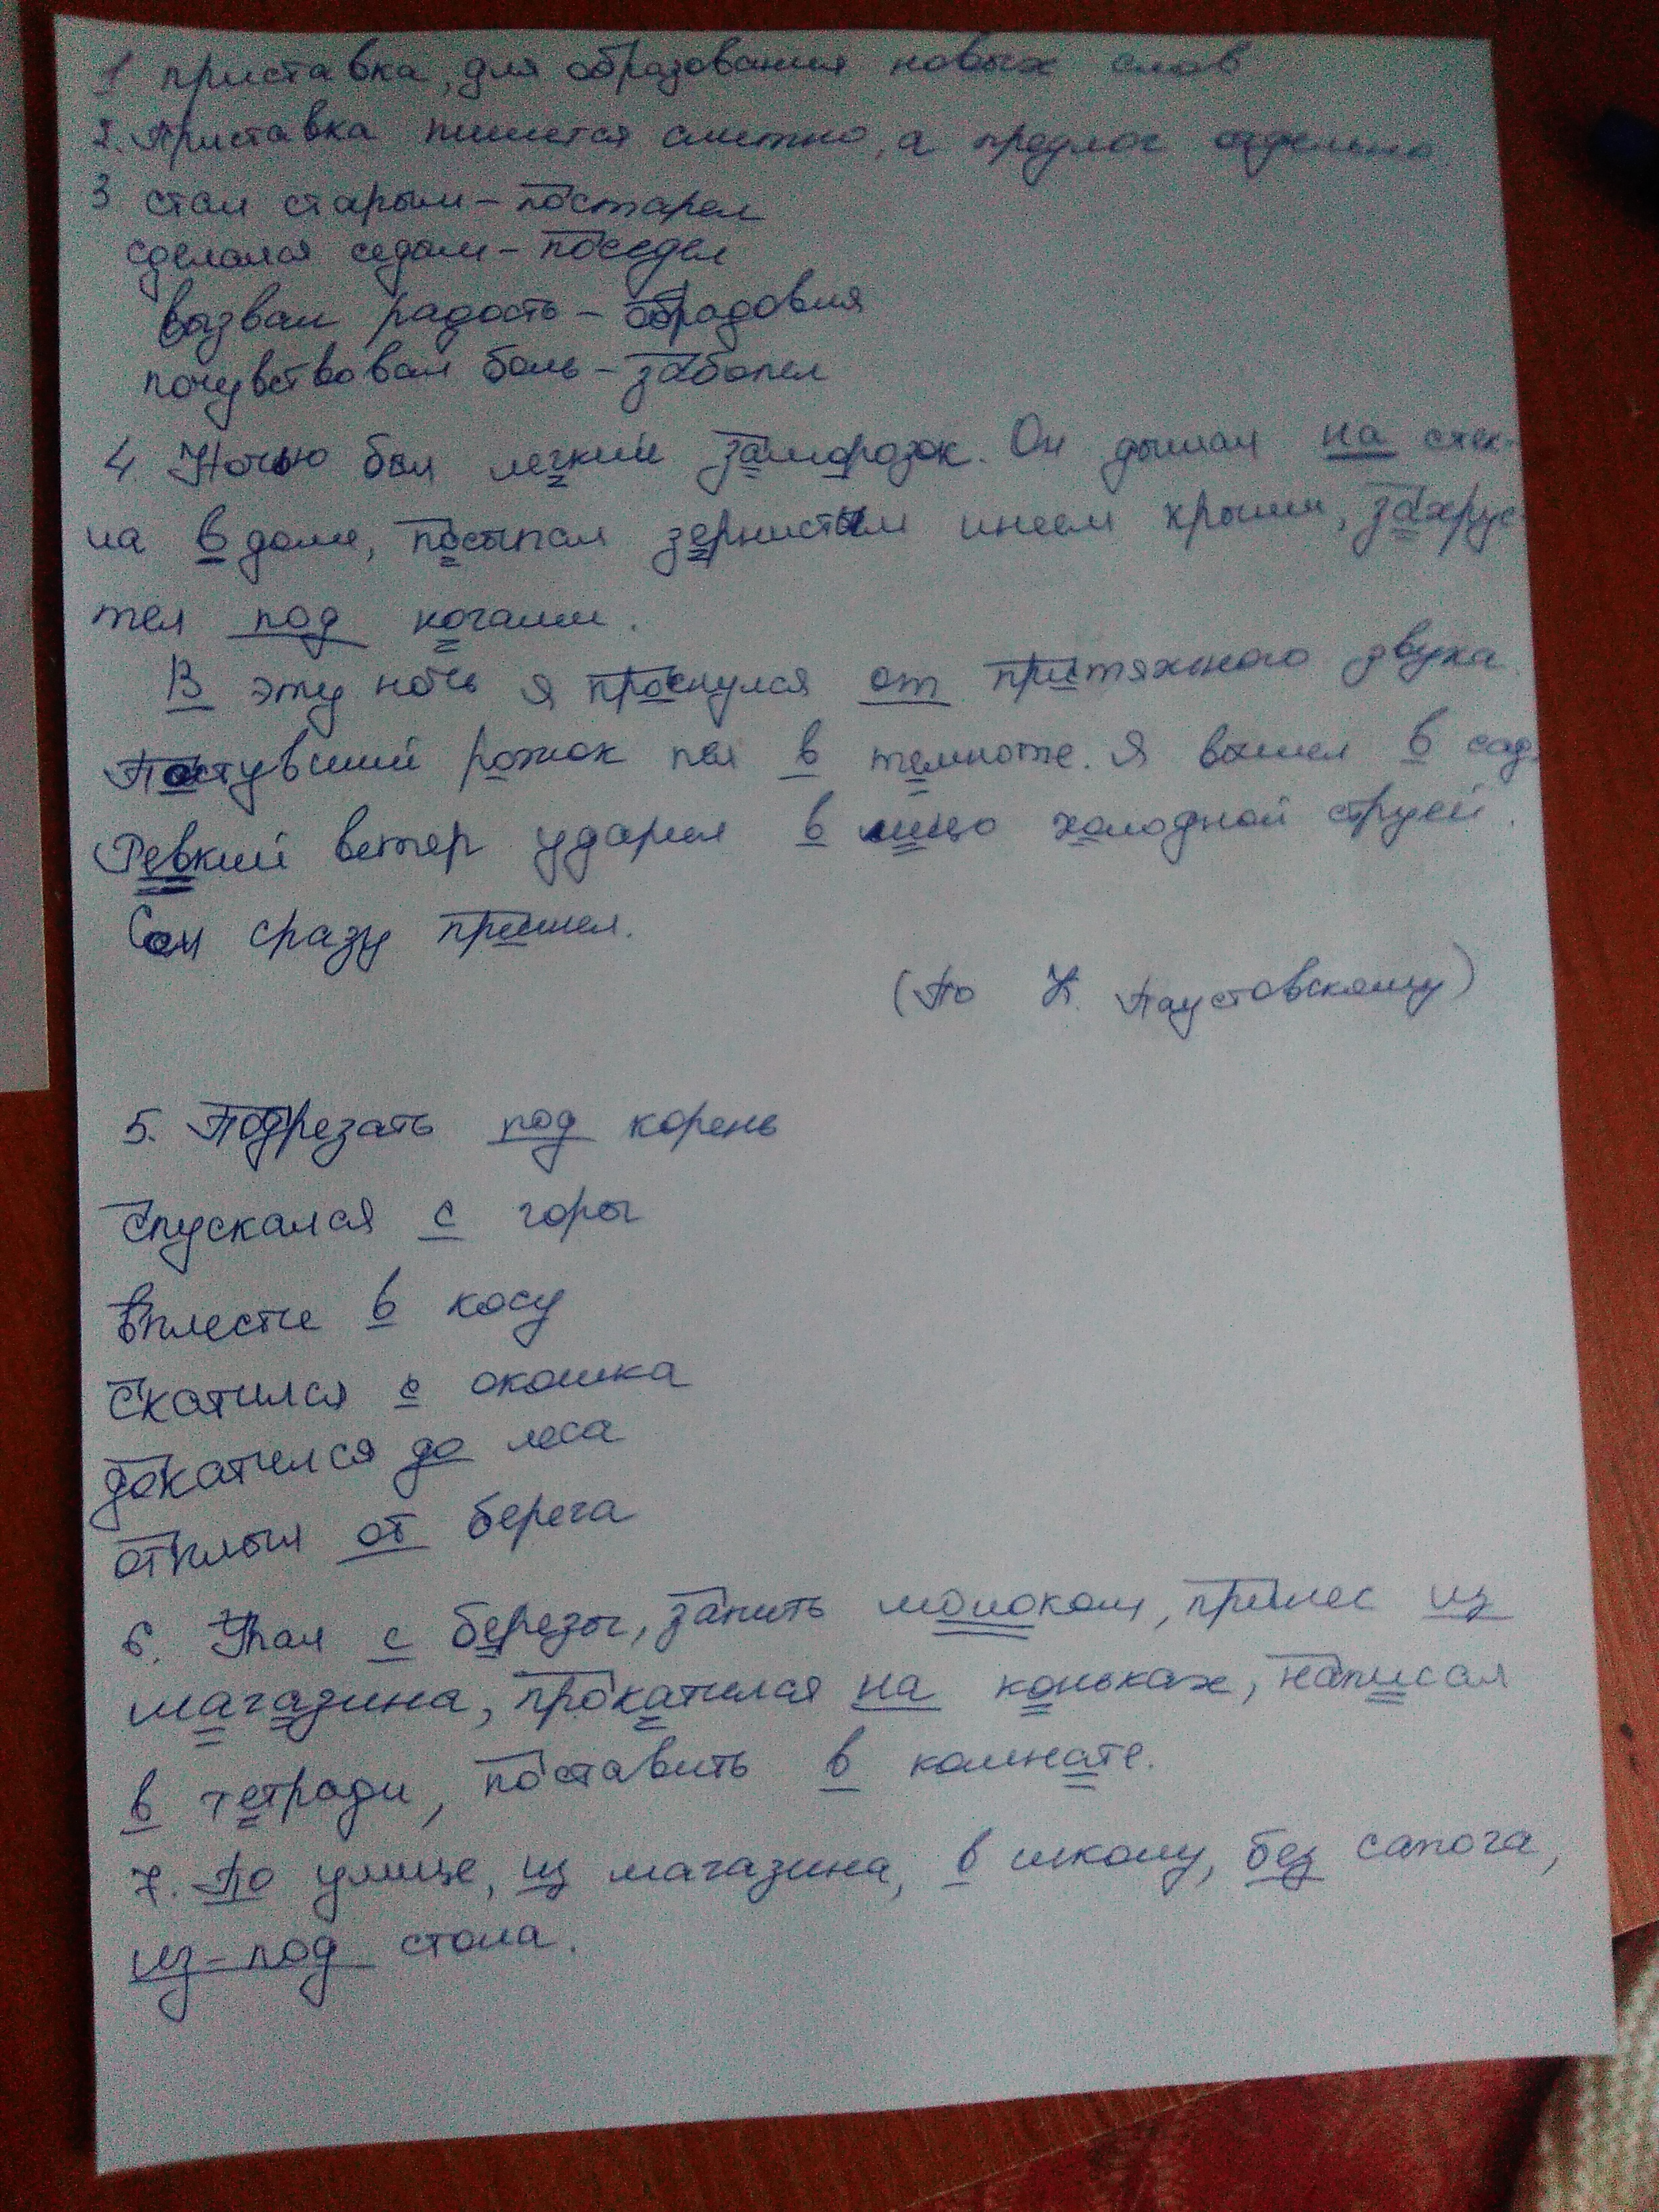 1 приставка, для образования новых слов
2. Приставка пишется слитно, а предлог отдельно
3 стал старым – постарел
сделался седым – поседел
вызвал радость – обрадовал
почувствовал боль – заболел
4. Ночью был легкий заморозок. Он дышал на стек-
ла в доме, посыпал зернистым инеем крыши, захрус
тел под ногами.
В эту ночь я проснулся от притяжного звука.
Пастуший рожок пел в темноте. Я вышел в сад.
Ревкий ветер ударил в лицо холодной струей.
Сон сразу пришел.
(По К. Паустовскому)
5. Подрезать под корень
Спускался с горы
вплести в косу
скатился с окошка
докатился до леса
отплыл от берега
6. Упал с березы, запить молоком, принес из
магазина, прокатился на коньках, написал
в тетради, поставить в комнате.
7. По улице, из магазина, в школу, без сапога,
из-под стола.